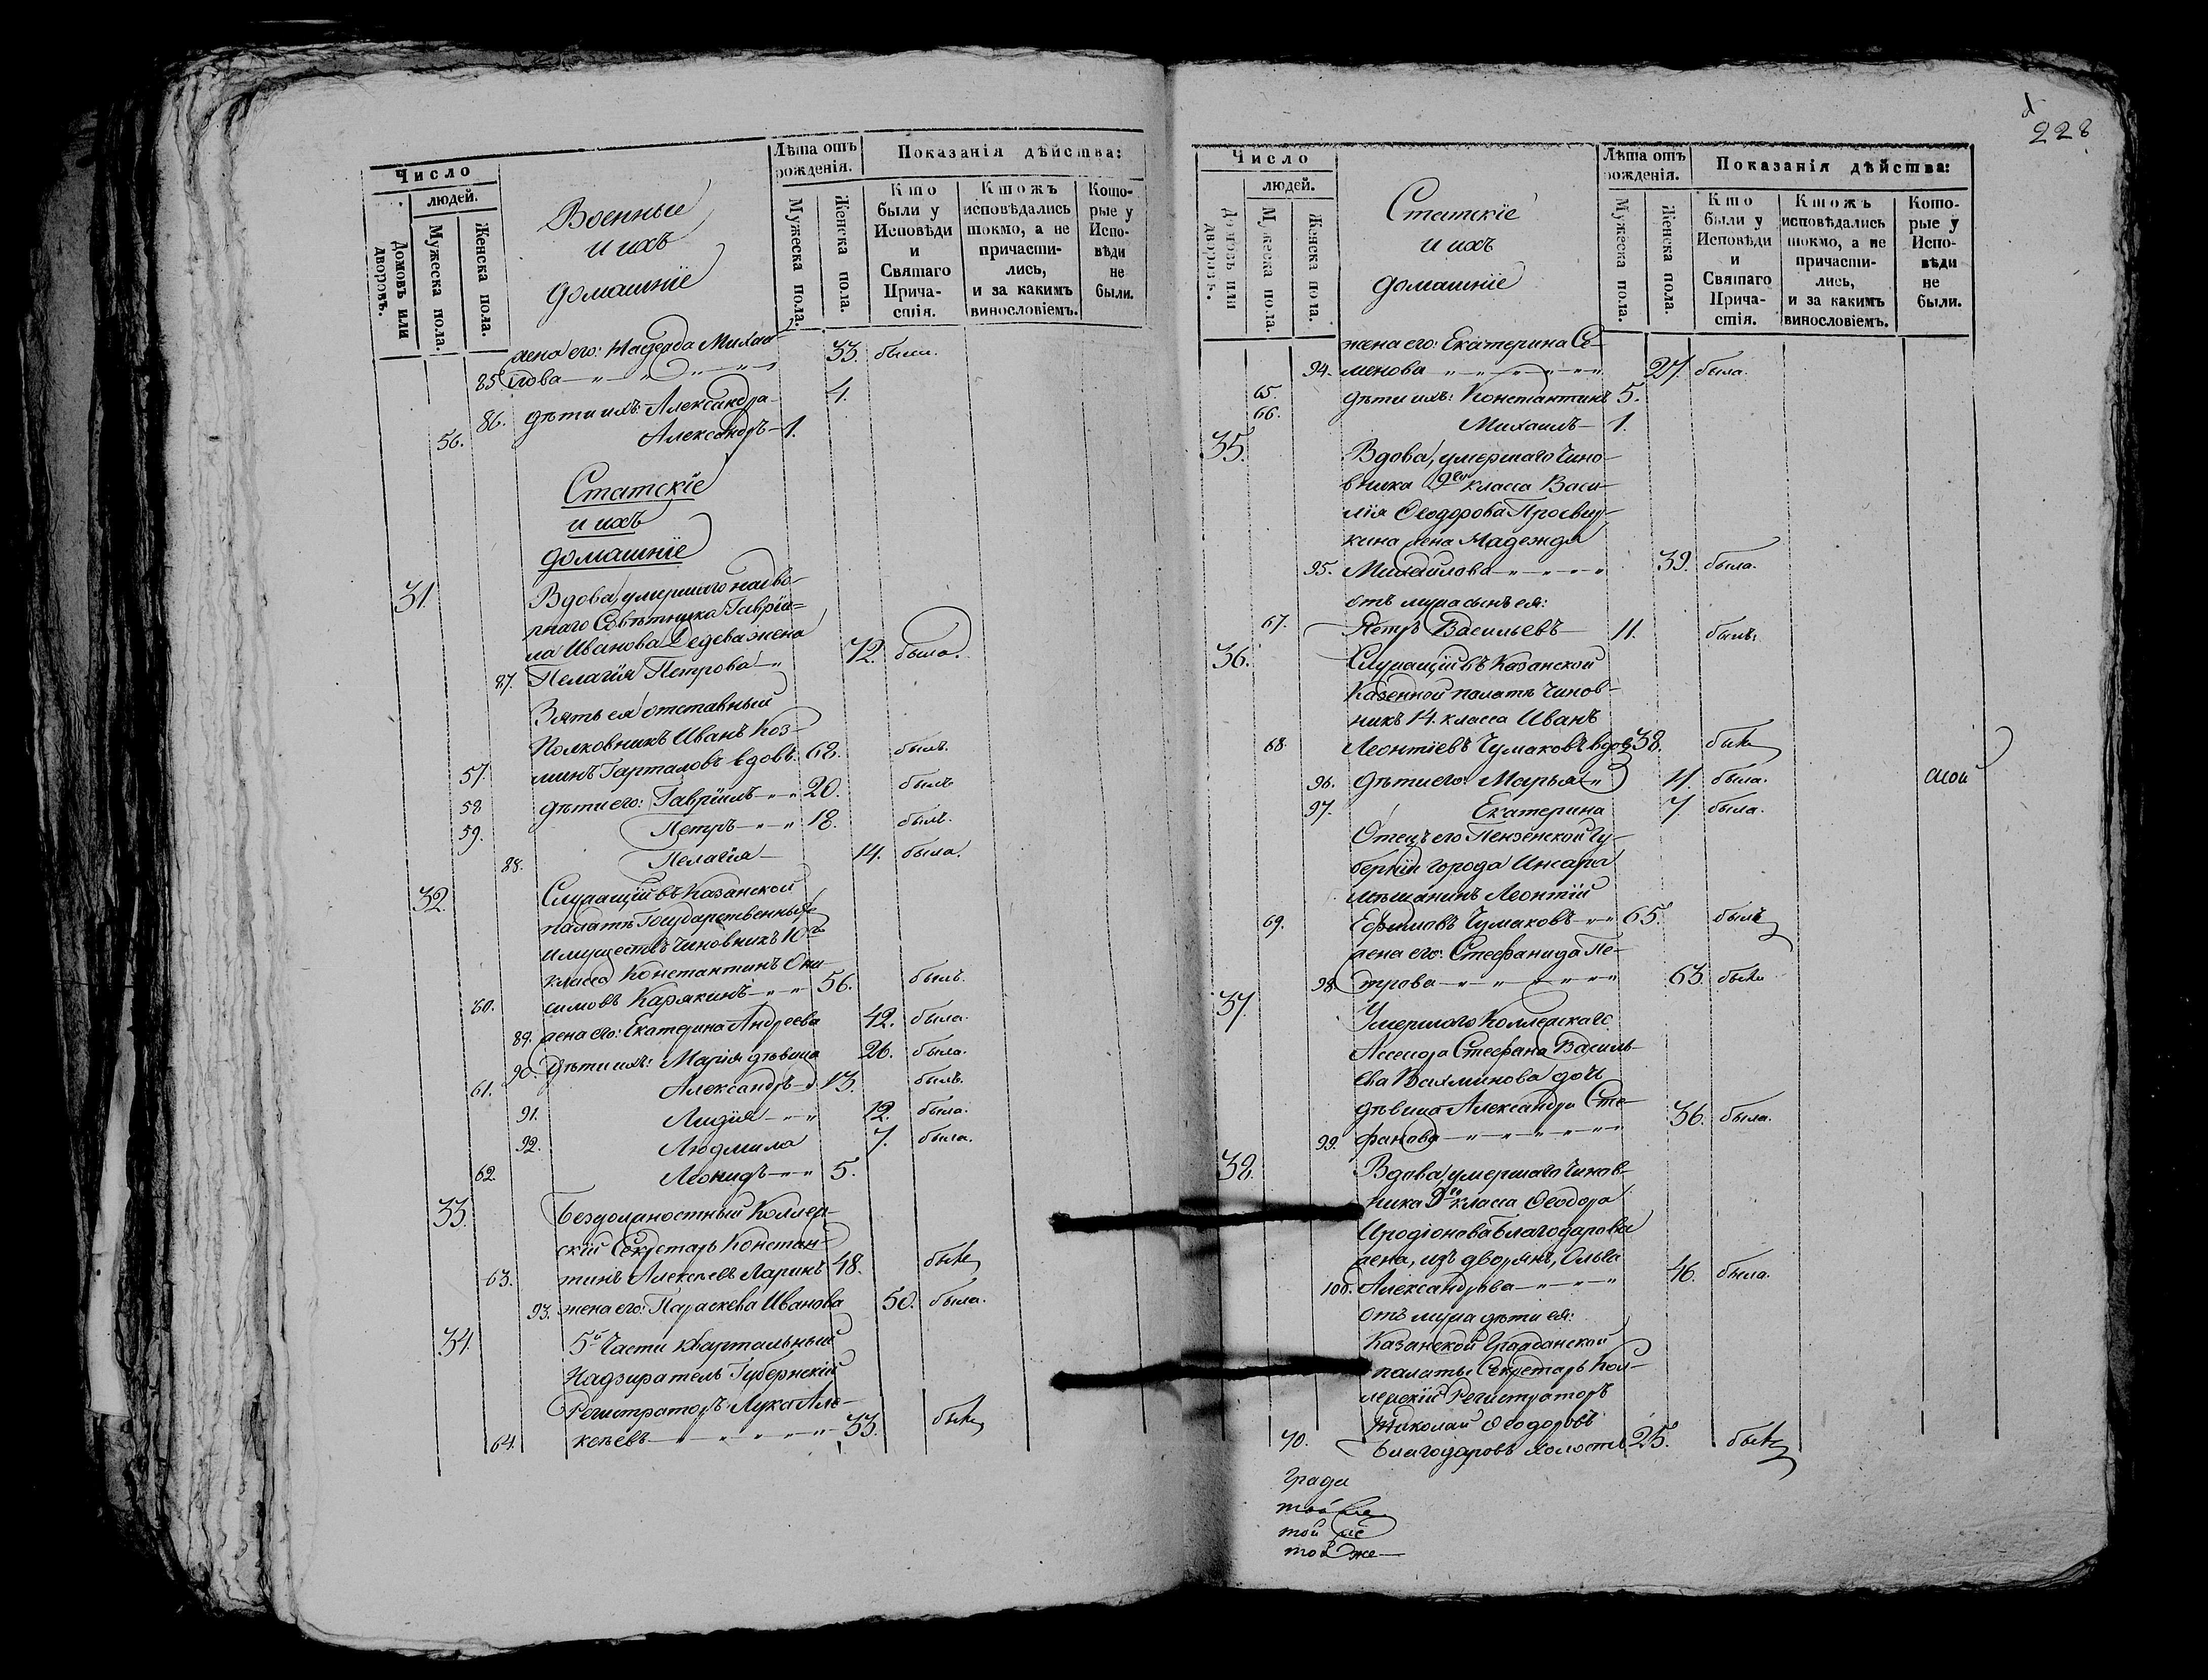 Число
людей.
Домовъ или дворовъ.
Мужеска пола.
Женска пола.
Военные
и ихъ
домашніе
Лѣта отъ рожденія.
Мужеска пола.
Женска пола.
Показанія дѣйства:
Кто были у Исповѣди и Святаго Причастія.
Ктожъ исповѣдались токмо, а не причастились, и за какимъ винословіемъ.
Которые у Исповѣди не были.
жена его: Надежда Михай-
85. лова 33. была.
86. дѣти ихъ: Александра 4.
56. Александръ 1.
Статскіе
и ихъ
домашніе
31. Вдова, умершаго надво-
рнаго Совѣтника Гавріи-
ла Иванова Дедева жена
87. Пелагія Петрова 72. была.
Зять ея отставный
Полковникъ Иванъ Коз-
57. минъ Гарталовъ вдовъ. 68. былъ.
58 дѣти его: Гавріилъ 20. былъ
59. Петръ 18. былъ.
88. Пелагія 14. была.
32. Служащій въ Казанской
палатѣ Государственныхъ
имуществъ Чиновникъ 10го
класса Константинъ Они-
60. симовъ Карякинъ 56. былъ.
89. жена его: Екатерина Андреева 42. была.
90. Дѣти ихъ: Марія дѣвица 26. была.
61. Александръ 13. былъ.
91. Лидія 12. была.
92. Людмила 7. была.
62. Леонидъ 5.
33. Бездолжностный Коллеж-
скій Секретарь Констан-
63. тинъ Алексѣевъ Ларинъ 48. былъ
93. жена его: Параскева Иванова 50. была.
34. 5й Части Квартальный
Надзиратель Губернскій
Регистраторъ Лука Але-
64. ксѣевъ 33. былъ
228
Число
людей.
Домовъ или дворовъ.
Мужеска пола.
Женска пола.
Статскіе
и ихъ
домашніе
Лѣта отъ рожденія.
Мужеска пола.
Женска пола
Показанія дѣйства:
Кто были у Исповѣди и Святаго Причастія.
Ктожъ исповѣдались токмо, а не причастились, и за какимъ винословіемъ.
Которые у Исповѣди не были.
жена его: Екатерина Се-
94. менова 27. была.
65. дѣти ихъ: Константинъ 5.
66. Михаилъ 1.
35. Вдова, умершаго Чино-
вника 9го класса Васи-
лія Ѳеодорова Просвир-
кина жена Надежда
95. Михайлова 39. была.
отъ мужа сынъ ея:
67. Петръ Васильевъ 11. былъ.
36. Служащій въ Казанской
Казенной палатѣ Чинов-
никъ 14. класса Иванъ
68 Леонтіевъ Чумаковъ вдовъ 38. былъ
96. дѣти его: Марья 11. была.
97. Екатерина 7. была.
Отецъ его Пензенской Гу-
берніи города Инсара
мѣщанинъ Леонтій
69. Ефимовъ Чумаковъ 65. былъ
жена его: Стефанида Пе-
98 трова 63. была
37. Умершаго Коллежскаго
Асесора Стефана Василь-
ева Вахминова дочь
дѣвица Александра Сте-
99. фанова 36. была.
38. Вдова, умершаго Чинов-
ника 9го класса Ѳеодора
Иродіонова Благодарова
жена, изъ дворянъ, Ольга
100. Александрова 46. была.
отъ мужа дѣти ея:
Казанской Гражданской
палаты Секретарь Кол-
лежскій Регистраторъ
Николай Ѳеодоровъ
70. Благодаровъ холостъ 25. былъ
Града
той же
той же
той же